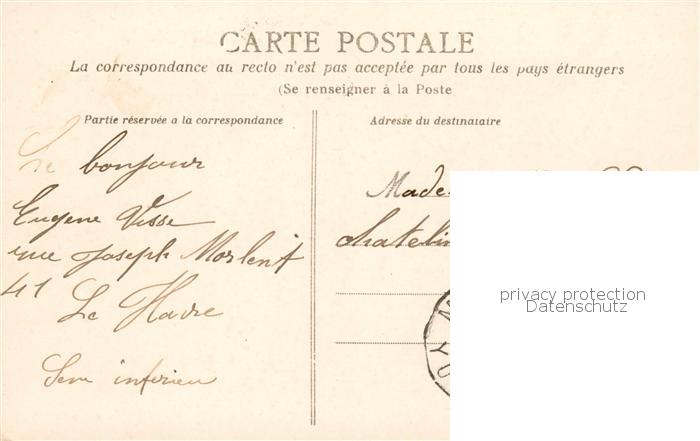 CARTE POSTALE
La correspondance au recto n'est pas acceptée par tous les pays étrangers
(Se renseigner à la Poste
Partie réservée a la correspondance
Adresse du destinataire
bonjour
Eugene Visse
rue Joseph Morlent
41
Le Havre
Seine inferieu
Made
chatelin
privacy protection
Datenschutz